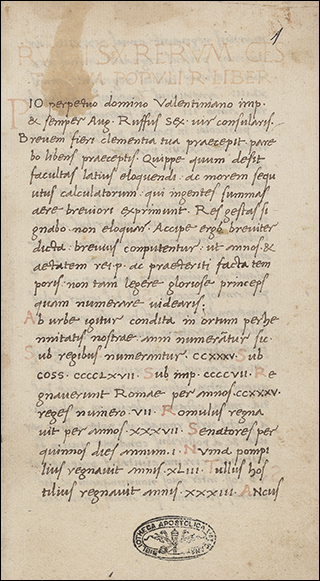 1
RUFI SX. RERUM GES
POPULI R. LIBER
PIO perpetuo domino Valentiniano imp.
& semper Aug. Ruffus Sex. vir consularis.
Brevem fieri clementia tua praecepit. pare
bo libens praeceptis. Quippe quum desit
facultas latius eloquendi. ac morem sequ
utus calculatorum. qui ingentes summas
aere breviori exprimunt. Res gestas si
gnabo. non eloquar. Accipe ergo breviter
dicta. brevius computentur. ut annos. &
aetatem rei.p. ac praeteriti facta tem
poris. non tam legere gloriose princeps
quam numerare videaris.
Ab urbe igitur condita in ortum perhe
nnitatis nostrae anni numerãtur sic.
Sub regibus numerantur. CCXXXV. Sub
COSS. CCCCLXVII. Sub imp. CCCCVII. Re
gnaverunt Romae per annos. CCXXXV.
reges numero. VII. Romulus regna
vit per annos. XXXVII. Senatores per
quinnos dies annum. I. Numa pompi
lius regnavit annis. XLIII. Tullus hos
tilius regnavit annis. XXXIII. Ancus